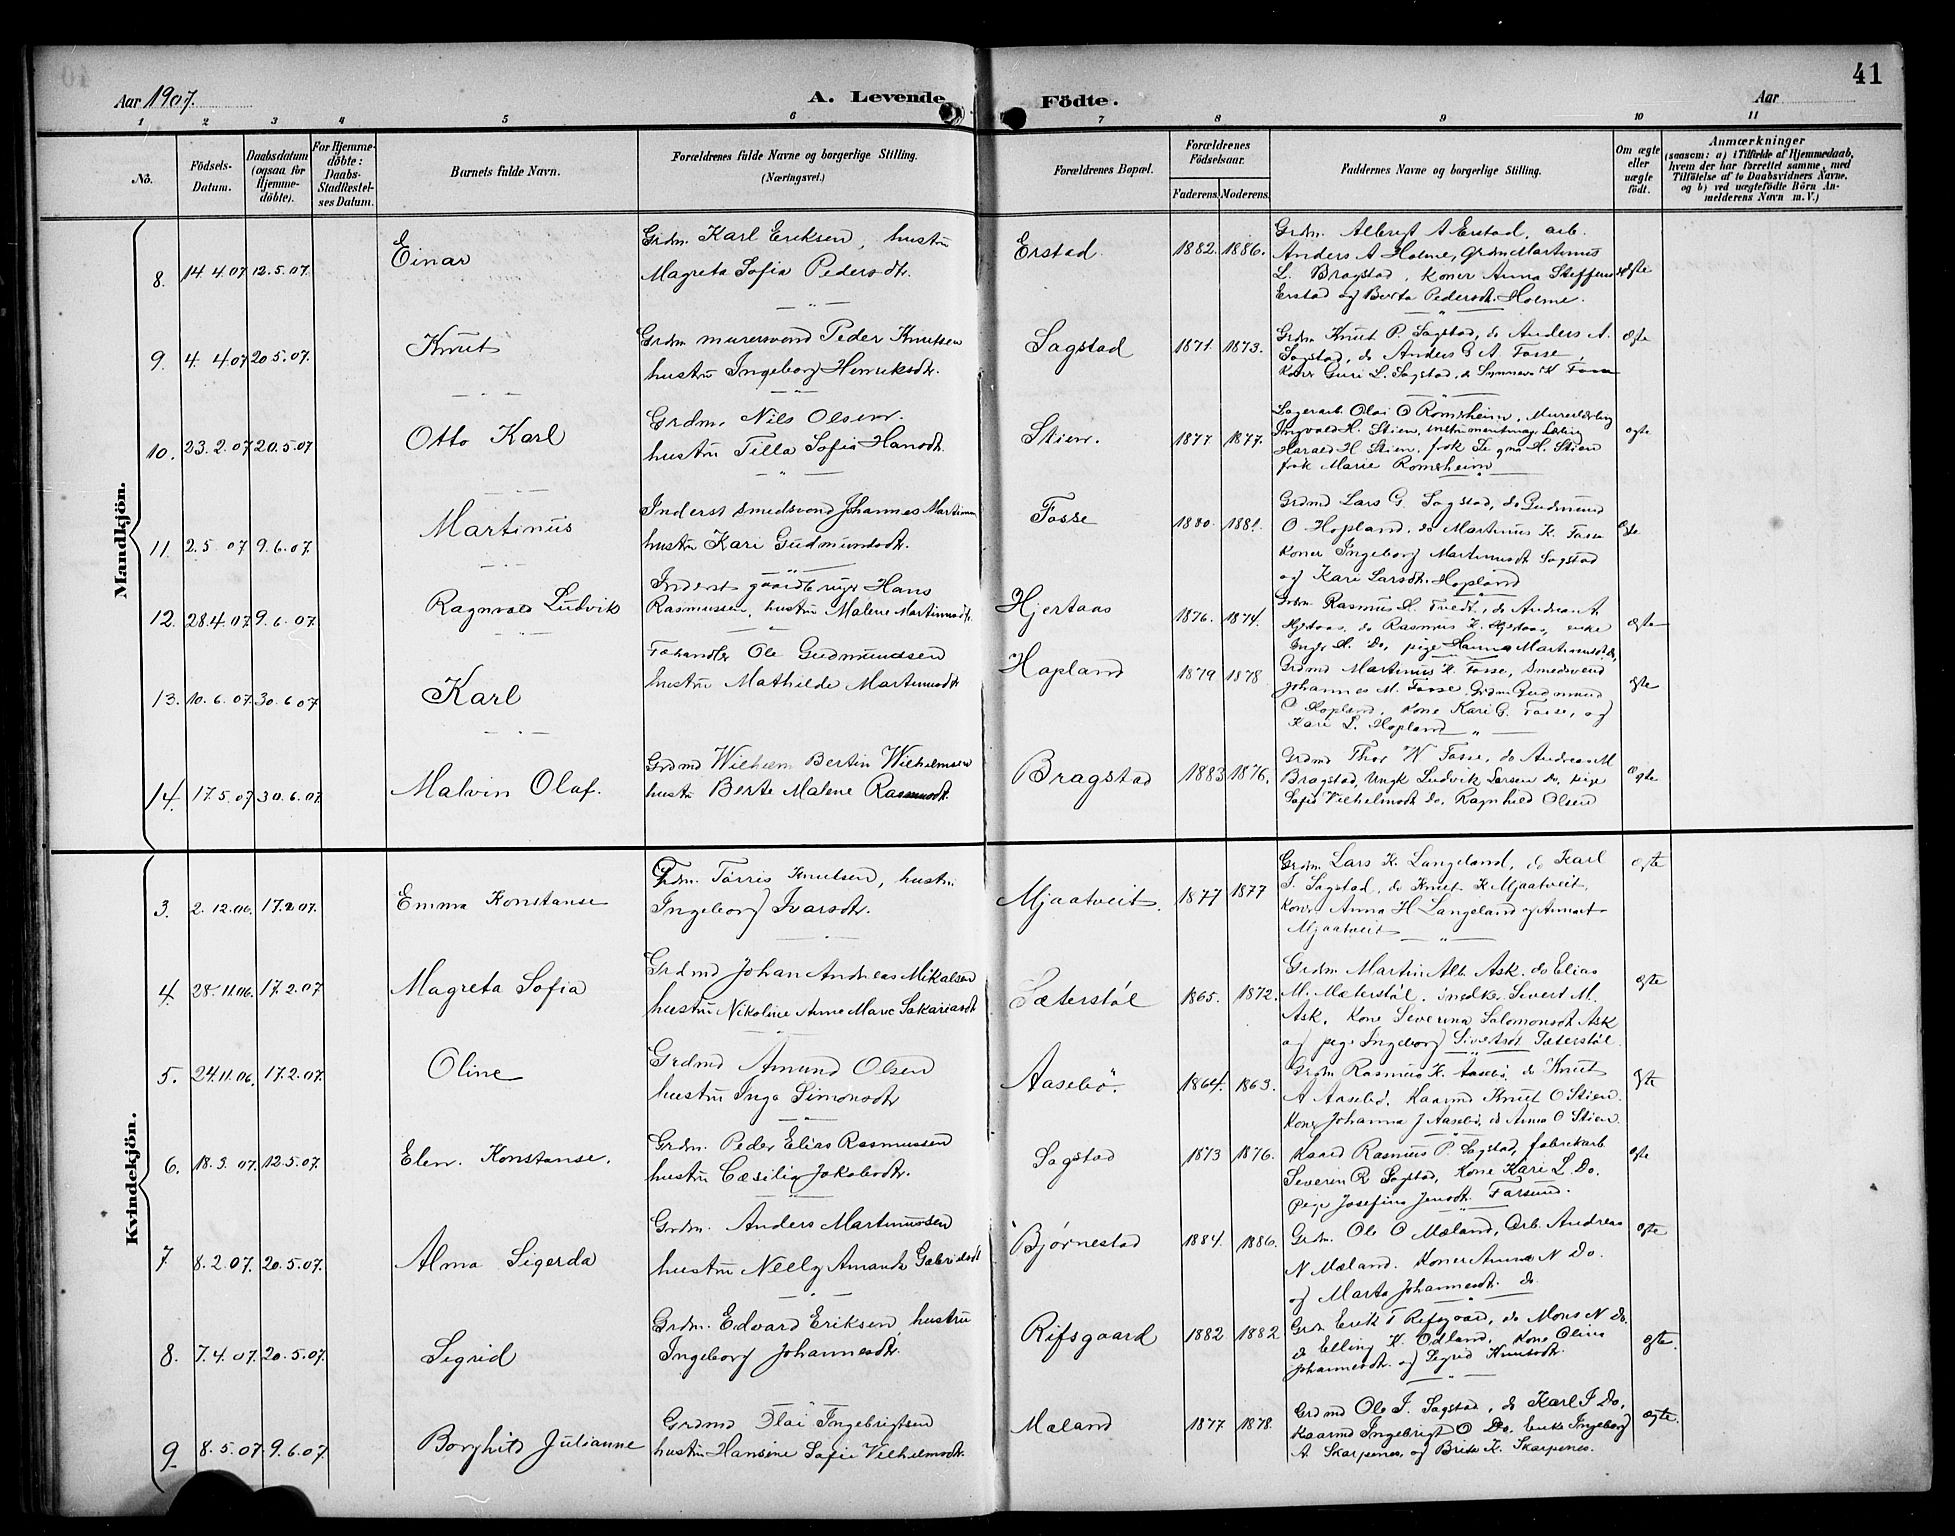 41
Aar 1907.
A. Levende Födte.
Aar
1 2 3 4 5 6 7 8 9 10 11
No.
Födsels-Datum.
Daabsdatum (ogsaa for Hjemme-döbte).
For Hjemme-döbte: Daabs-Stadfæstel-ses Datum.
Barnets fulde Navn.
Forældrenes fulde Navne og borgerlige Stilling. (Næringsvei.)
Forældrenes Bopæl.
Forældrenes Födselsaar.
Faderens. Moderens.
Faddernes Navne og borgerlige Stilling.
Om ægte eller uægte födt.
Anmærkninger
(saasom: a) i Tilfælde af Hjemmedaab, hvem der har forrettet samme, med Tilföielse af to Daabsvidners Navne, og b) ved uægtefödte Börn An-melderens Navn m. V.)
Mandkjön.
8. 14 4.07 12.5.07. Einar
Grdm. Karl Eriksen, hustru
Magreta Sofia Pedersdtr.
Erstad 1882. 1886.
Grdm. Albrigt A Erstad, arb.
Anders A Holme, Grdm Martinus
L. Bragstad, Koner Anna Steffensd
Erstad og Berta Pedersdt. Holme.
ægte
9. 4. 4.07 20.5.07. Knut
Grdm murersvend Peder Knutsen
hustru Ingeborg Henriksdtr.
Sagstad 1871. 1873.
Grdm Knut P. Sagstad, do Anders A.
Sagstad, do Anders G A. Fosse,
Koner Guri L. Sagstad, do Synneva K Fosse
ægte
10. 23.2.07 20.5.07 Otto Karl
Grdm. Nils Olsen.
hustru Tilla Sofia Hansdt.
Stien. 1877 1877.
Lagerarb Olai O Romsheim, Murerlærling
Ingvald H. Stien, instrumentmag Lærling
Harald H Stien, frøk H. Stien
frøk Marie Romsheim
ægte
11. 2.5.07 9.6.07. Martinus
Inderst smedsvend Johannes Martinsen
hustru Kari Gudmundsdt.
Fosse 1880. 1881.
Grdmd Lars G. Sagstad, do Gudmund
O Hopland, do Martinus K. Fosse
Koner Ingeborg Martinusdt Sagstad
og Kari Larsdt. Hopland
ægte
12. 28.4.07 9.6.07. Ragnvald Ludvik
Inderst gaardbruger Hans
Rasmussen, hustru Malene Martinusdt.
Hjertaas 1876. 1874.
Grdm Rasmus H. Tvedt, do Andreas A
Hjertaas, do Rasmus K. Hjertaas, enke
Inger H. Do, pige Hanna Martinusdt. do,
ægte
13. 10.6.07. 30.6 07 Karl
Fæhandler Ole Gudmundsen
hustru Mathilde Martinusdt
Hopland 1879 1878
Grdmd Martinus K. Fosse, Smedsvend
Johannes M. Fosse Grdm Gudmund
O Hopland, Kone Kari G. Fosse, og
Kari L. Hopland
ægte
14. 17.5.07 30.6.07. Malvin Olaf.
Grdmd Wilhelm Bertin Wilhelmsen
hustru Berte Malene Rasmusdt.
Bragstad 1883 1876.
Grdmd Thor N Fosse, do Andreas M
Bragstad, Ungk Ludvik Larsen do, pige
Sofie Vilhelmsdt do, Ragnhild Olsen
ægte
Kvindekjön.
3. 2.12.06. 17.2.07. Emma Konstanse
Grdm. Tørris Knutsen, hustru
Ingeborg Ivarsdt.
Mjaatveit. 1877 1877
Grdm. Lars K. Langeland, do Karl
J. Sagstad, do Knut K Mjaatveit,
Koner Anna H Langeland og
Mjaatveit
ægte
4. 28.11.06. 17.2.07 Magreta Sofia
Grdmd Johan Andreas Mikalsen
hustru Nikoline Anne Marie Sakariasdt
Sæterstøl 1865. 1872.
Grdm Martin Alb. Ask. do Elias
M. Sæterstøl. snedker Sivert M.
Ask, Kone Severina Salomonsdt Ask
og pige Ingeborg Sivertsdt Sæterstøl.
ægte
5. 24.11.06. 17.2.07. Oline
Grdmd Amund Olsen
hustru Inga Simonsdtr
Aasebø. 1864. 1863.
Grdm Rasmus K. Aasebø, do Knut
A Aasebø, Kaarmd Knut O Stien.
Koner Johanna J Aasebø, do Anna O Stien
ægte
6. 18.3.07. 12.5.07. Elen. Konstanse.
Grdm. Peder Elias Rasmussen
hustru Cæsilia Jakobsdtr.
Sagstad 1873 1876.
Kaard Rasmus P. Sagstad, fabrikarb
Severin R Sagstad, Kone Kari L. Do.
Pige Josefina Jensdt. Farsund.
ægte
7 8.2.07. 20.5.07. Alma Sigerda
Grdm. Anders Martinussen
hustru Nelly Amanda Gabrielsdt
Bjørnestad 1884. 1886.
Grdm. Ole O Mæland, Arb. Andreas
N Mæland. Koner Anna N Do.
og Marta Johannesdt. do.
ægte
8. 7.4.07. 20.5.07. Sigrid
Grdm. Edvard Eriksen, hustru
Ingeborg Johannesdt.
Rifsgaard 1882 1882
Grdm Erik T Refsgaard, do Mons N do.
do Elling K. Odland, Kone Olina
Johannesdt. og Sigrid Knutsdt.
ægte.
9 8.5.07 9.6.07. Borghild Julianne
Grdmd Olai Ingebrigtsen
hustru Hansine Sofie Vilhelmsdt.
Mæland 1877 1878.
Grdmd Ole J. Sagstad, do Karl J Do,
Kaarmd Ingebrigt O Do, Enke Ingeborg
A Skarpenes, og Brita K. Skarpenes.
ægte.